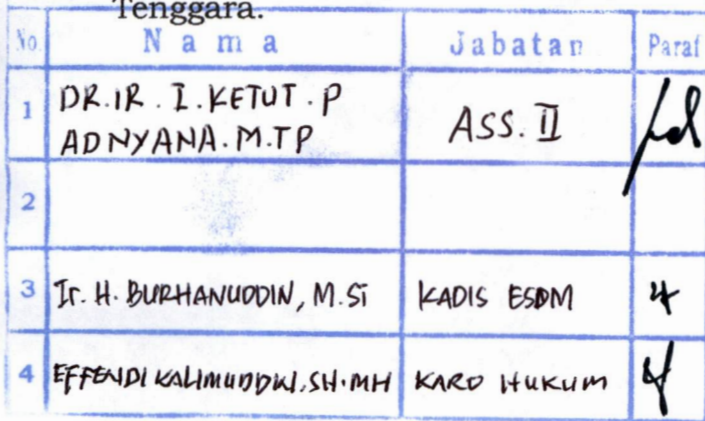 Tenggara.
No. Nama Jabatan Paraf
1 DR.IR. I.KETUT.P
ADNYANA.M.TP ASS. II
2
3 Ir. H. BURHANUDDIN, M.Si KADIS ESDM
4 EFFENDI KALIMUDDIN.SH.MH KARO HUKUM